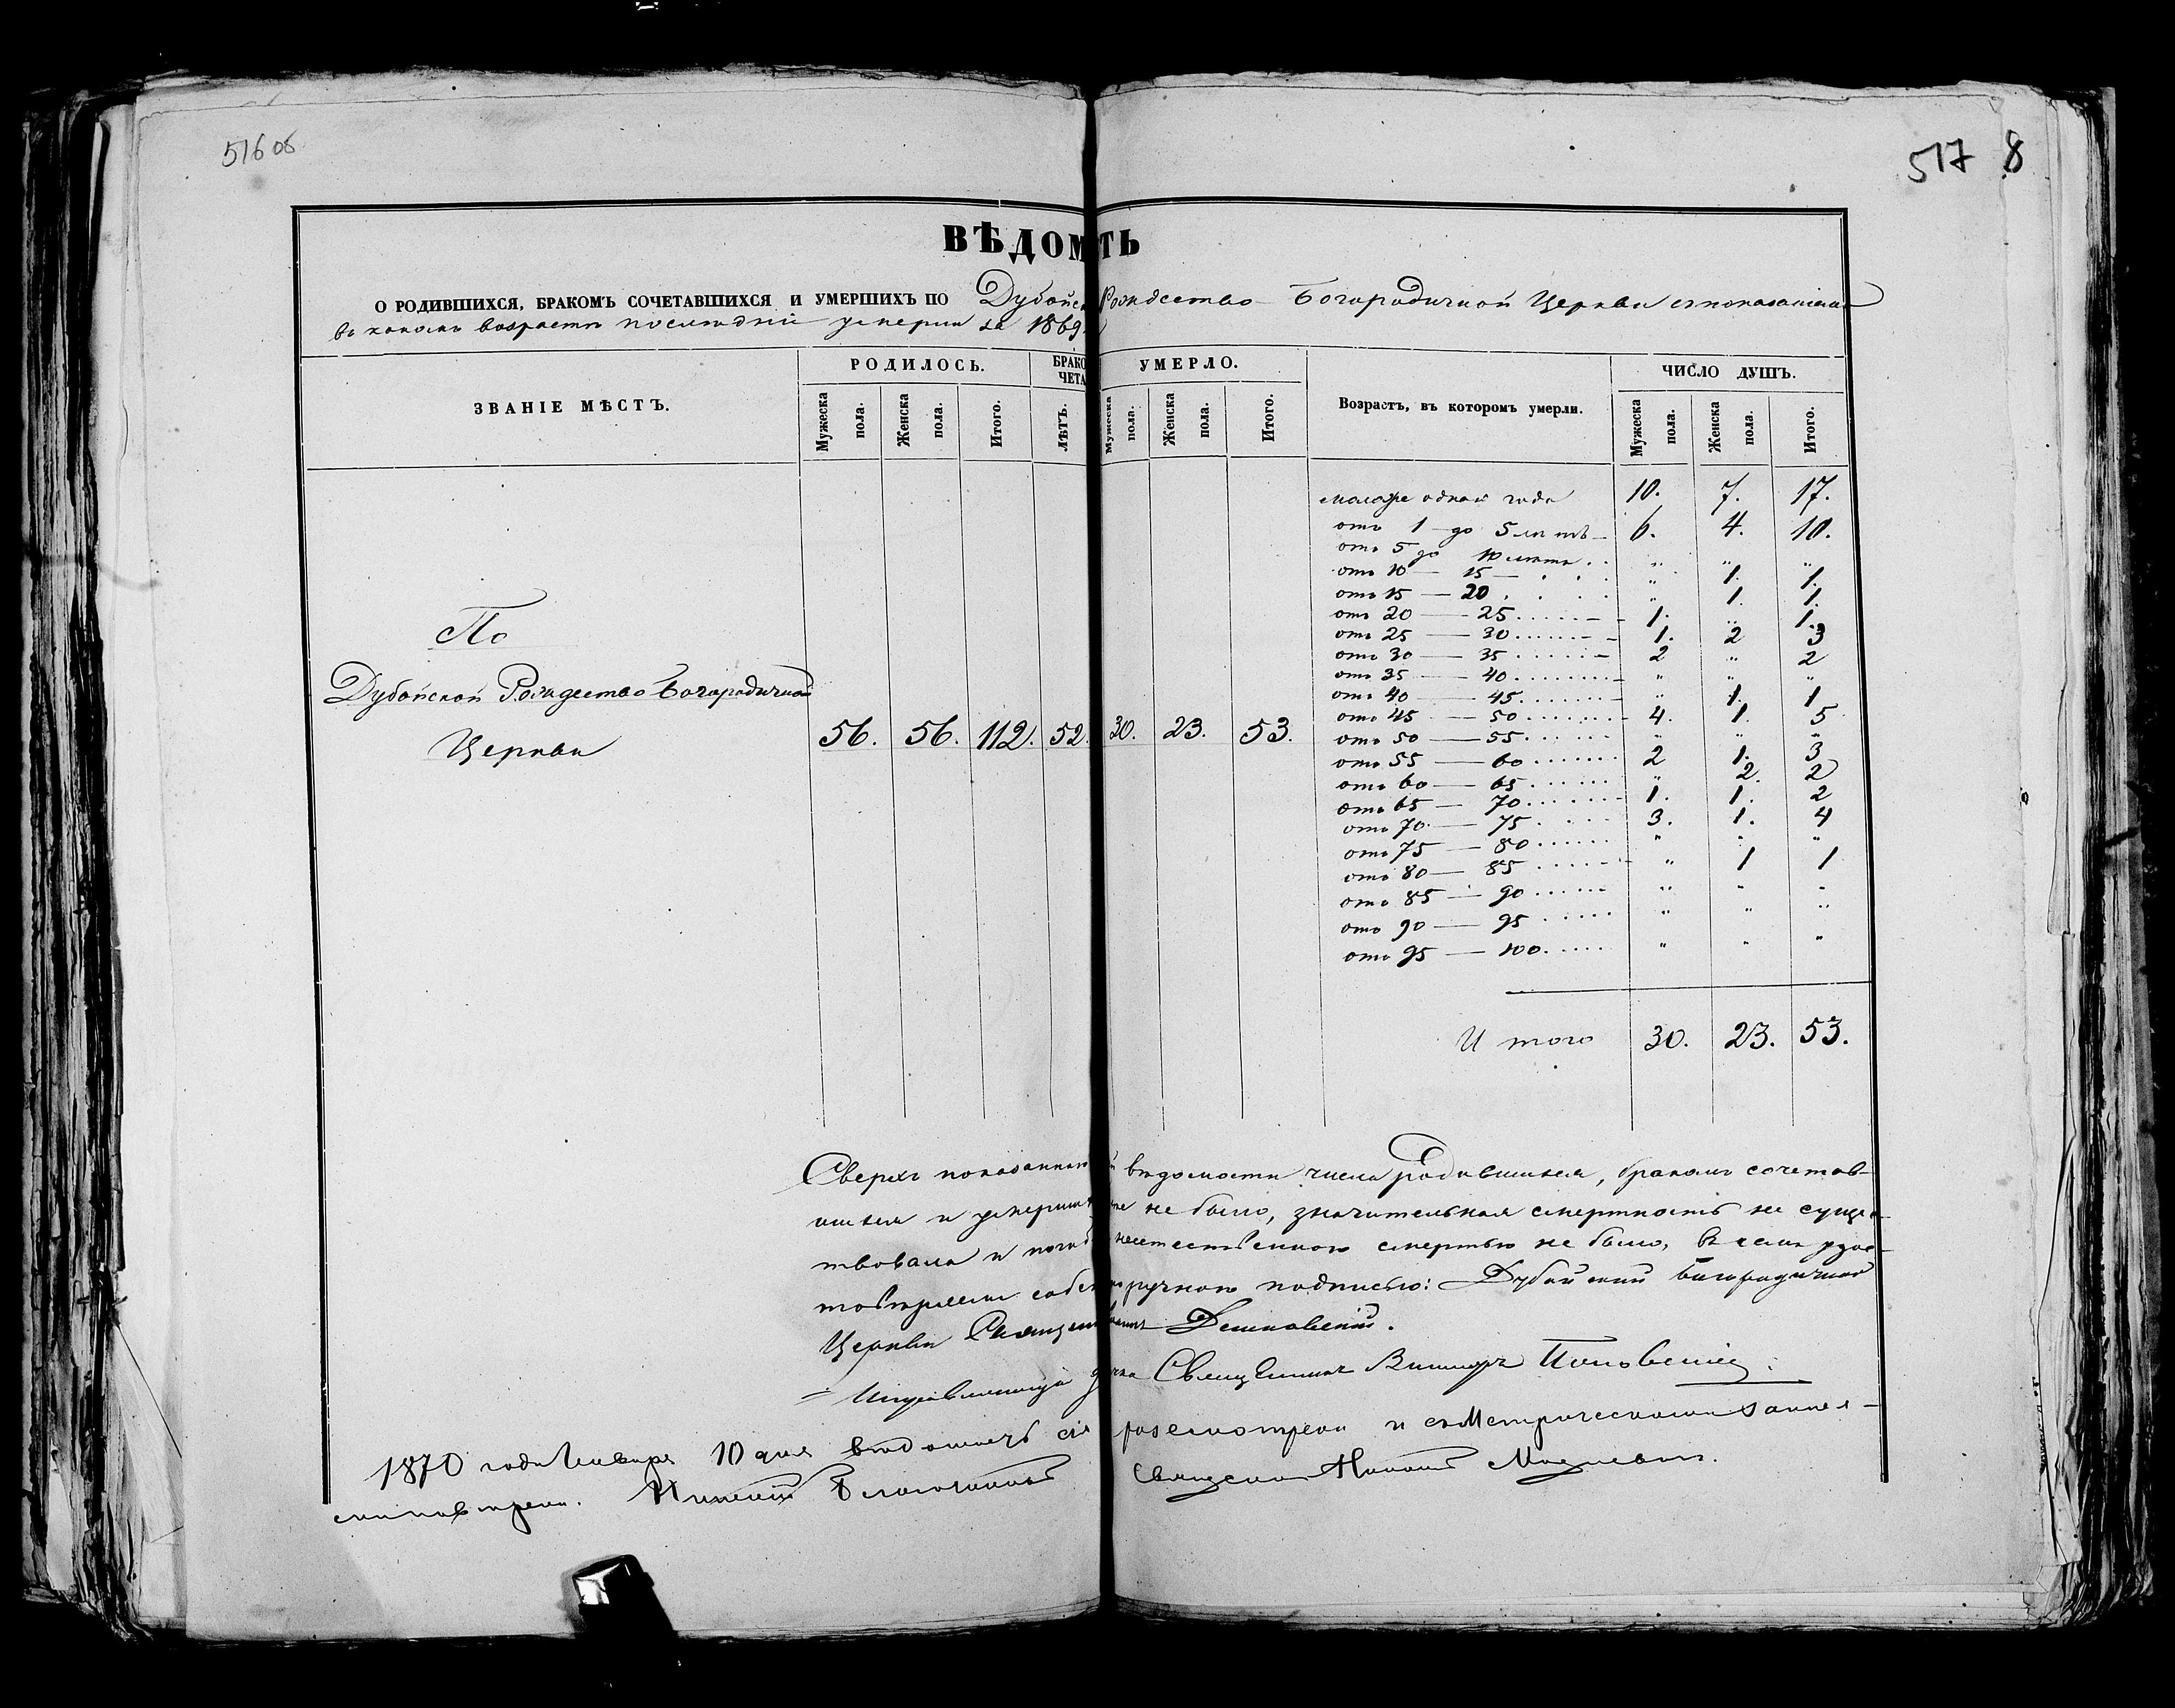 516 об
517 8
ВѢДОМ ТЬ
О РОДИВШИХСЯ, БРАКОМЪ СОЧЕТАВШИХСЯ И УМЕРШИХЪ ПО Дубойск Рождество Богородичной Церкви съ показаніемъ
въ какомъ возрастѣ послѣдніе умерли за 1869
ЗВАНІЕ МѢСТЪ.
РОДИЛОСЬ.
БРАКО
ЧЕТА
УМЕРЛО.
Возрастъ, въ которомъ умерли.
ЧИСЛО ДУШЪ.
Мужеска пола. Женска пола. Итого. ЛѢТЪ. Мужеска пола. Женска пола. Итого. Мужеска пола. Женска пола. Итого.
моложе одного года 10. 7. 17.
отъ 1 до 5 лѣтъ 6. 4. 10.
отъ 5 до 10 лѣтъ . . " " "
отъ 10 — 15 — . . . " 1. 1.
отъ 15 — 20 . . . " 1. 1.
отъ 20 — 25 1. " 1.
отъ 25 — 30 1. 2 3
отъ 30 — 35 2 " 2
отъ 35 — 40 " " "
отъ 40 — 45 " 1. 1
отъ 45 — 50 4. 1. 5
отъ 50 — 55 " " "
отъ 55 — 60 2 1. 3
отъ 60 — 65 " 2. 2
отъ 65 — 70 1. 1. 2
отъ 70 — 75 3. 1. 4
отъ 75 — 80 " " "
отъ 80 — 85 " 1 1
отъ 85 — 90 " " "
отъ 90 — 95 " " "
отъ 95 — 100 " " "
Итого 30. 23. 53.
По
Дубойской Рождество Богородичной
Церкви 56. 56. 112. 52. 30. 23. 53.
Сверхъ показаннаго вѣдомости числа родившихся, бракомъ сочетав-
шихся и умерш не было, значительная смертность не сущес-
твовала и погиб неестественною смертью не было, въ чемъ удос-
товѣряемъ собств ручною подписью: Дубойской Богородичной
Церкви Священ
Священникъ
1870 года Января 10 дня вѣдомость сія разсмотрена и съ Метрическими запися-
Благочинный Священникъ